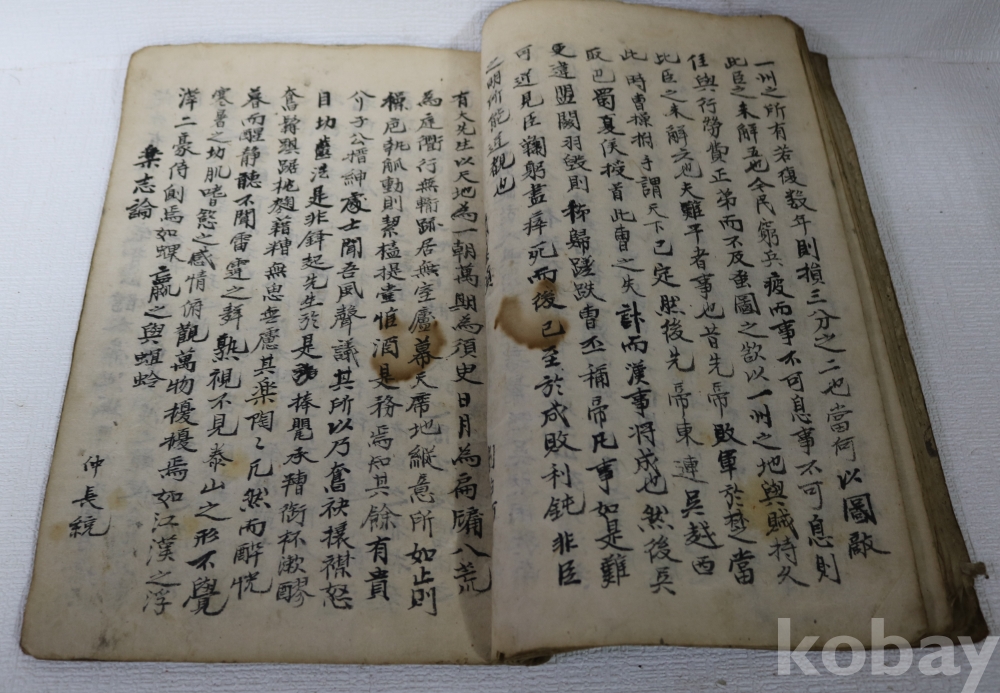 一州之所有若復数年則損三分之二也當何以圖敵
此臣之未解五也今民窮兵疲而事不可息事不可息則
住與行勞費正苐而不及蚤圖之欲以一州之地與賊持久
此臣之未解六也夫難平者事也昔先帝敗軍於楚當
此時曹操拊手謂天下已定然後先帝東連吳越西
取巴蜀夏侯授首此曹之失計而漢事將成也然後吳
更違盟關羽毀則秭歸蹉跌曹丕稱帝凡事如是難
可逆見臣鞠躬盡瘁死而後已至於成敗利鈍非臣
之明所能逆覩也
有大先生以天地為一朝萬期為須臾日月為扃牖八荒
為庭衢行無轍跡居無室廬幕天席地縱意所如止則
操卮執觚動則挈榼提壺惟酒是務焉知其餘有貴
介子公搢紳處士聞吾風聲議其所以乃奮袂攘襟怒
目切齒法是非鋒起先生於是捧甖承糟銜杯漱醪
奮髥踑踞枕麴藉糟無思無慮其楽陶〻兀然而醉恍
㫺而醒静聽不聞雷霆之聲熟視不見泰山之形不覺
寒暑之切肌嗜慾之感情俯觀萬物擾擾焉如江漢之浮
萍二豪侍側焉如蜾蠃之與螟蛉
楽志論
仲長統
kobay